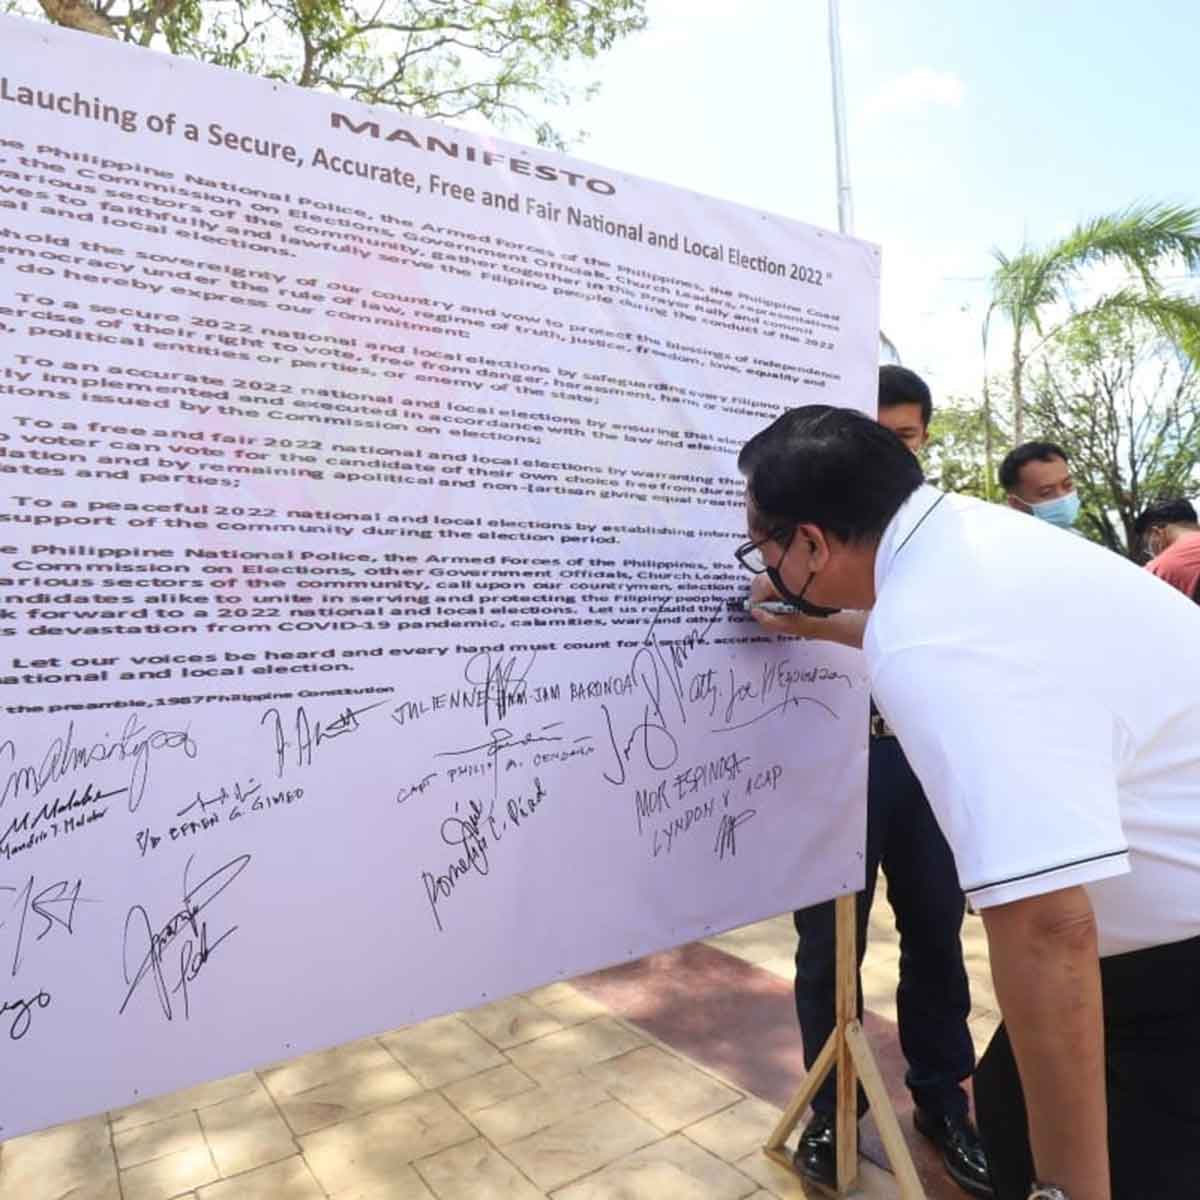 MANIFESTO
Lauching of a Secure, Accurate, Free and Fair National and Local Election 2022"
he Philippine National Police, the Armed Forces of the Philippines, the Philippine Coast
, the Commission on Elections, Government Officials, Church Leaders, representatives
various sectors of the community, gather together in this Prayer Rally and commit
ves to faithfully and lawfully serve the Filipino people during the conduct of the 2022
al and local elections.
phold the sovereignty of our country and vow to protect the blessings of independence
emocracy under the rule of law, regime of truth, justice, freedom, love, equality and
do hereby express our commitment:
To a secure 2022 national and local elections by safeguarding every Filipino
ercise of their right to vote, free from danger, harassment, harm or violence
, political entities or parties, or enemy of the state;
To an accurate 2022 national and local elections by ensuring that elec
rly implemented and executed in accordance with the law and election
tions issued by the Commission on elections;
To a free and fair 2022 national and local elections by warranting tha
o voter can vote for the candidate of their own choice free from dures
dation and by remaining apolitical and non-[artisan giving equal treatm
dates and parties;
To a peaceful 2022 national and local elections by establishing interna
support of the community during the election period.
e Philippine National Police, the Armed Forces of the Philippines, the
Commission on Elections, other Government Officials, Church Leaders,
arious sectors of the community, call upon our countrymen, election
ndidates alike to unite in serving and protecting the Filipino people,
k forward to a 2022 national and local elections. Let us rebuild the
s devastation from COVID-19 pandemic, calamities, wars and other for
Let our voices be heard and every hand must count for a secure, accurate, free
ational and local election.
the preamble, 1987 Philippine Constitution
JULIENNE JAM-JAM BARONDA
Atty. Joe H Espinosa
CAPT PHILIP A. CENDAÑA
MOR ESPINOSA
LYNDON V ACAP
M. Malabor
Mandrie T. Malabor
P/B EFREN G. GIMEO